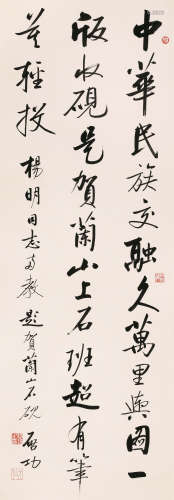 中華民族交融久萬里輿圖一
版收硯是賀蘭山上石班超有筆
莫輕投 楊明同志雨教 題賀蘭山石硯 啟功